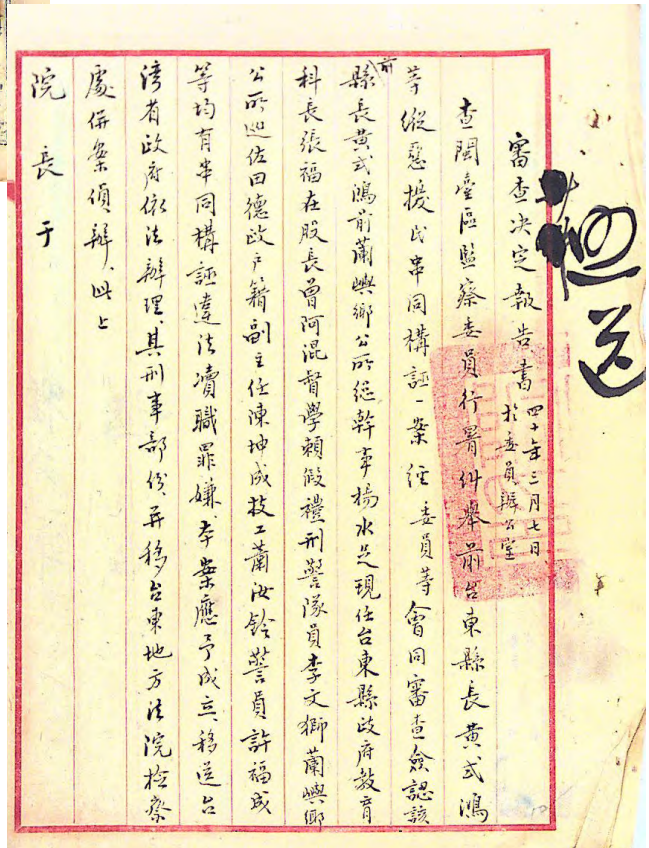 審查決定報告書
四十年三月七日
於委員辦公室
查閩臺區監察委員行署糾舉前台東縣長黃式鴻
等縱惡援民串同構誣一案經委員等會同審查僉認該
前縣長黃式鴻前蘭嶼鄉公所總幹事楊水足現任台東縣政府教育
科長張福在股長曾阿混督學賴假禮刑警隊員李文鄉蘭嶼鄉
公所巡佐田德政戶籍副主任陳坤成技工蕭汝鈴警員許福成
等均有串同構誣違法瀆職罪嫌、本案應予成立、移送台
灣省政府依法辦理、其刑事部份、并移台東地方法院檢察
處併案偵辦、此上
院長于